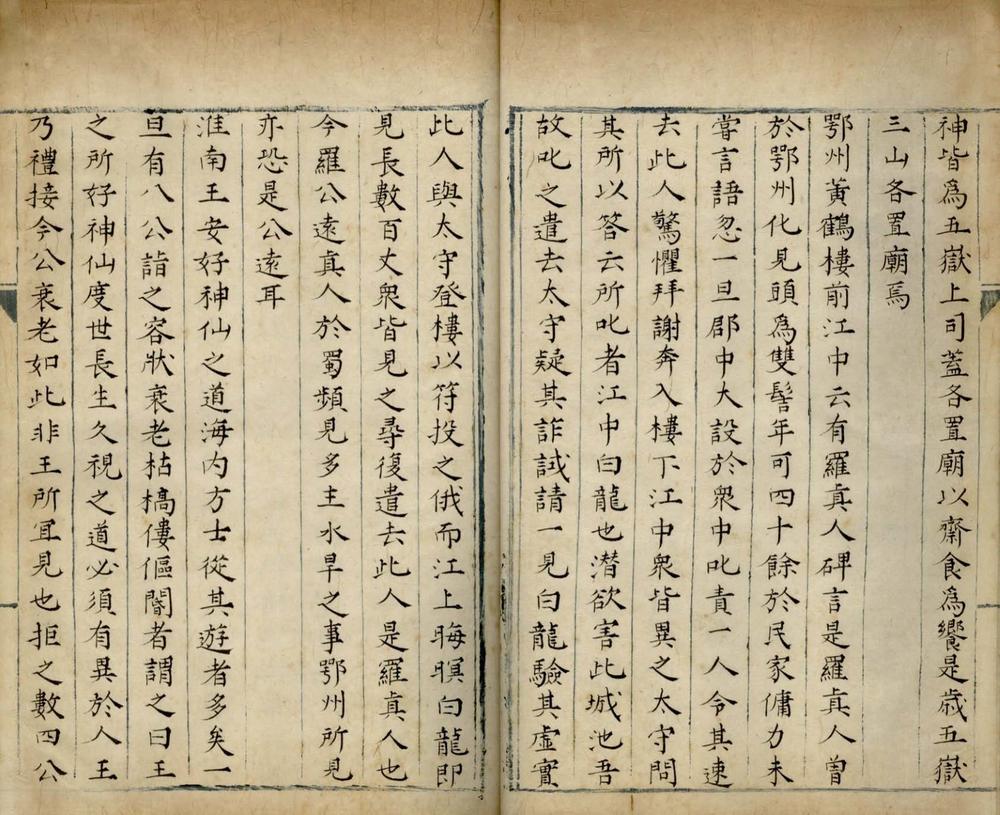 神皆爲五嶽上司蓋各置廟以齋食爲饗是歳五嶽
三山各置廟焉
鄂州黃鶴樓前江中云有羅真人碑言是羅真人曾
於鄂州化見頭爲雙髻年可四十餘於民家傭力未
嘗言語忽一旦郡中大設於衆中叱責一人令其速
去此人驚懼拜謝奔入樓下江中衆皆異之太守問
其所以答云所叱者江中白龍也潜欲害此城池吾
故叱之遣去太守疑其詐誠請一見白龍驗其虛實
此人與太守登樓以符投之俄而江上晦暝白龍即
見長數百丈衆皆見之尋復遣去此人是羅真人也
今羅公遠真人於蜀頻見多主水旱之事鄂州所見
亦恐是公遠耳
淮南王安好神仙之道海内方士從其遊者多矣一
旦有八公詣之容狀衰老枯槁僂傴閽者謂之曰王
之所好神仙度世長生久視之道必須有異於人王
乃禮接今公衰老如此非王所宜見也拒之數四公